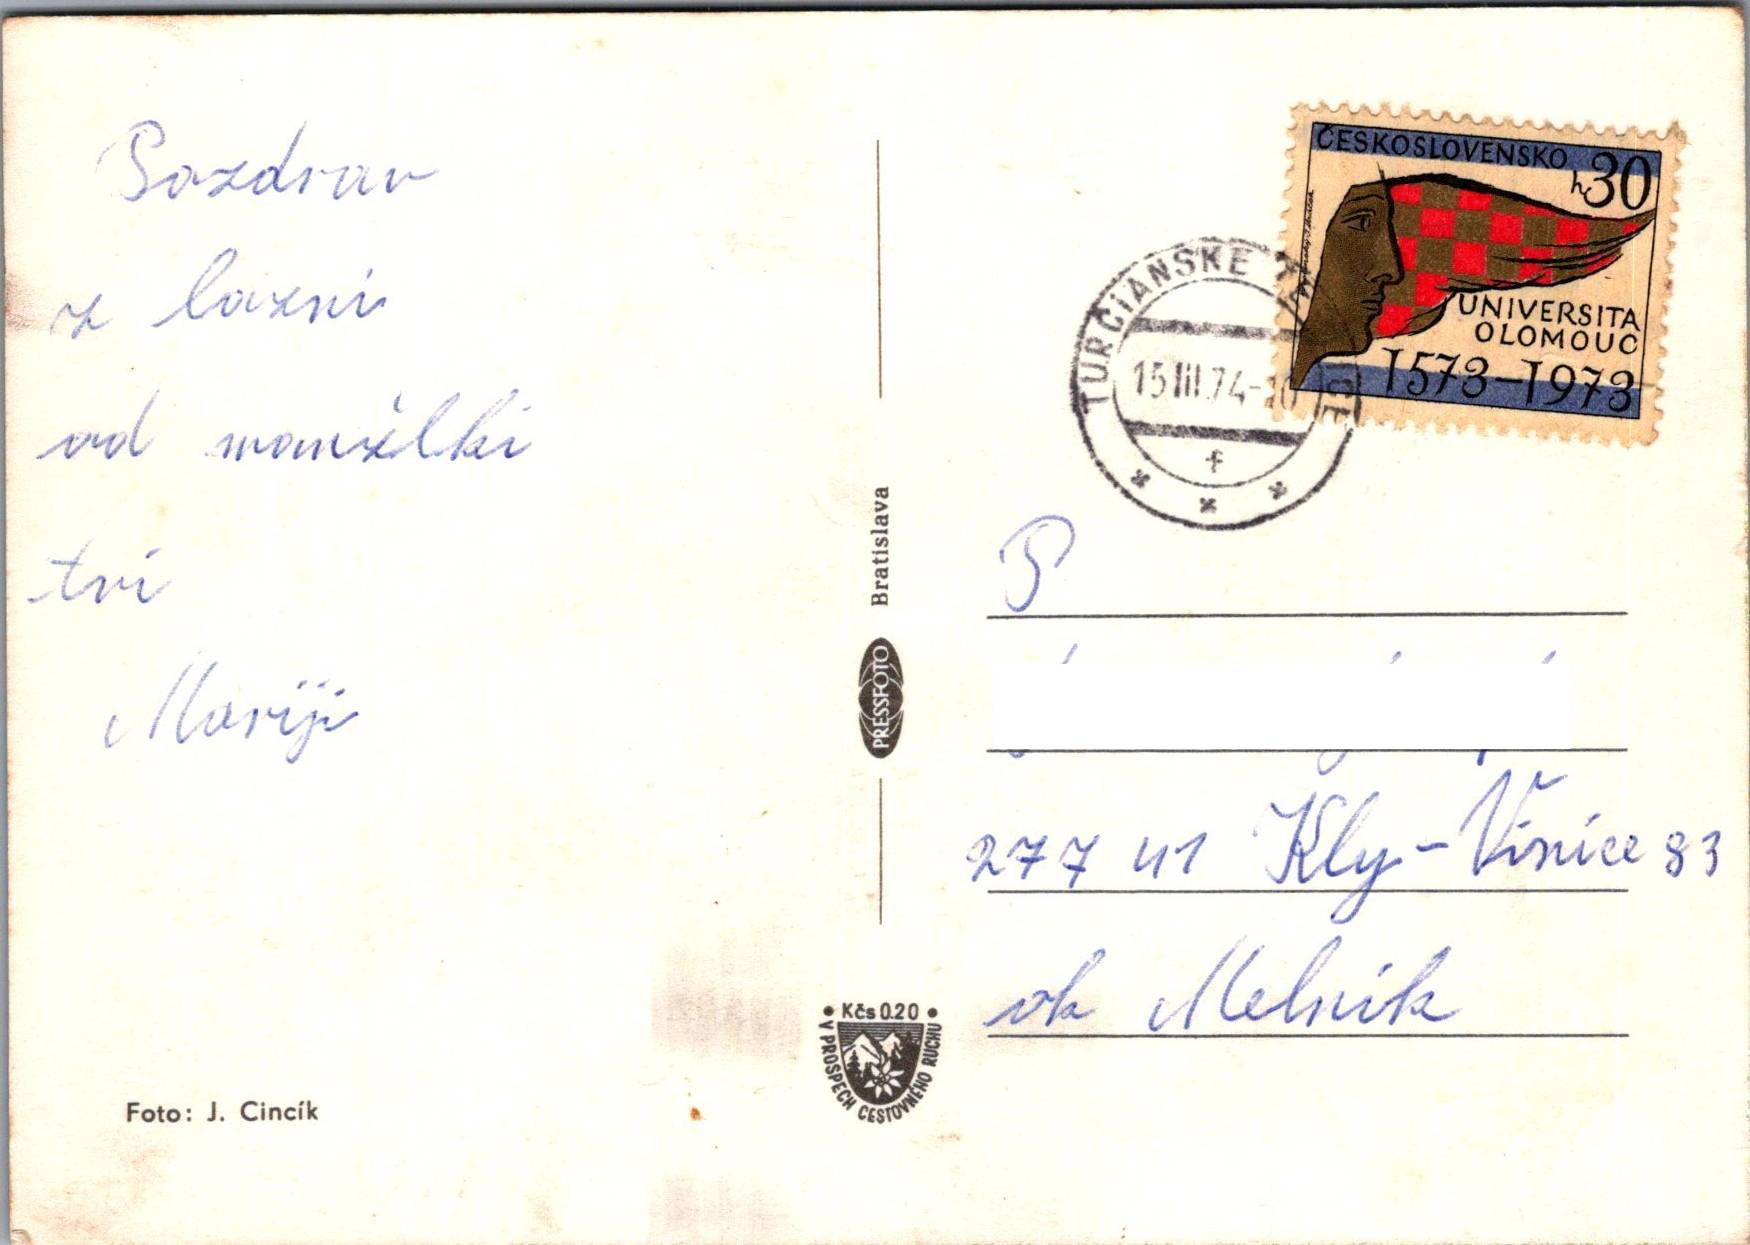 Pozdrav
z lazni
od manželki
tvi
Mariji
Foto: J. Cincík
Bratislava
PRESSFOTO
• Kčs 0.20 •
V PROSPECH CESTOVNÉHO RUCHU
ČESKOSLOVENSKO
h 30
UNIVERSITA
OLOMOUC
1573–1973
TURČIANSKE
15.III.74-10
f
P
277 41 Kly - Vinice 83
ok Melnik